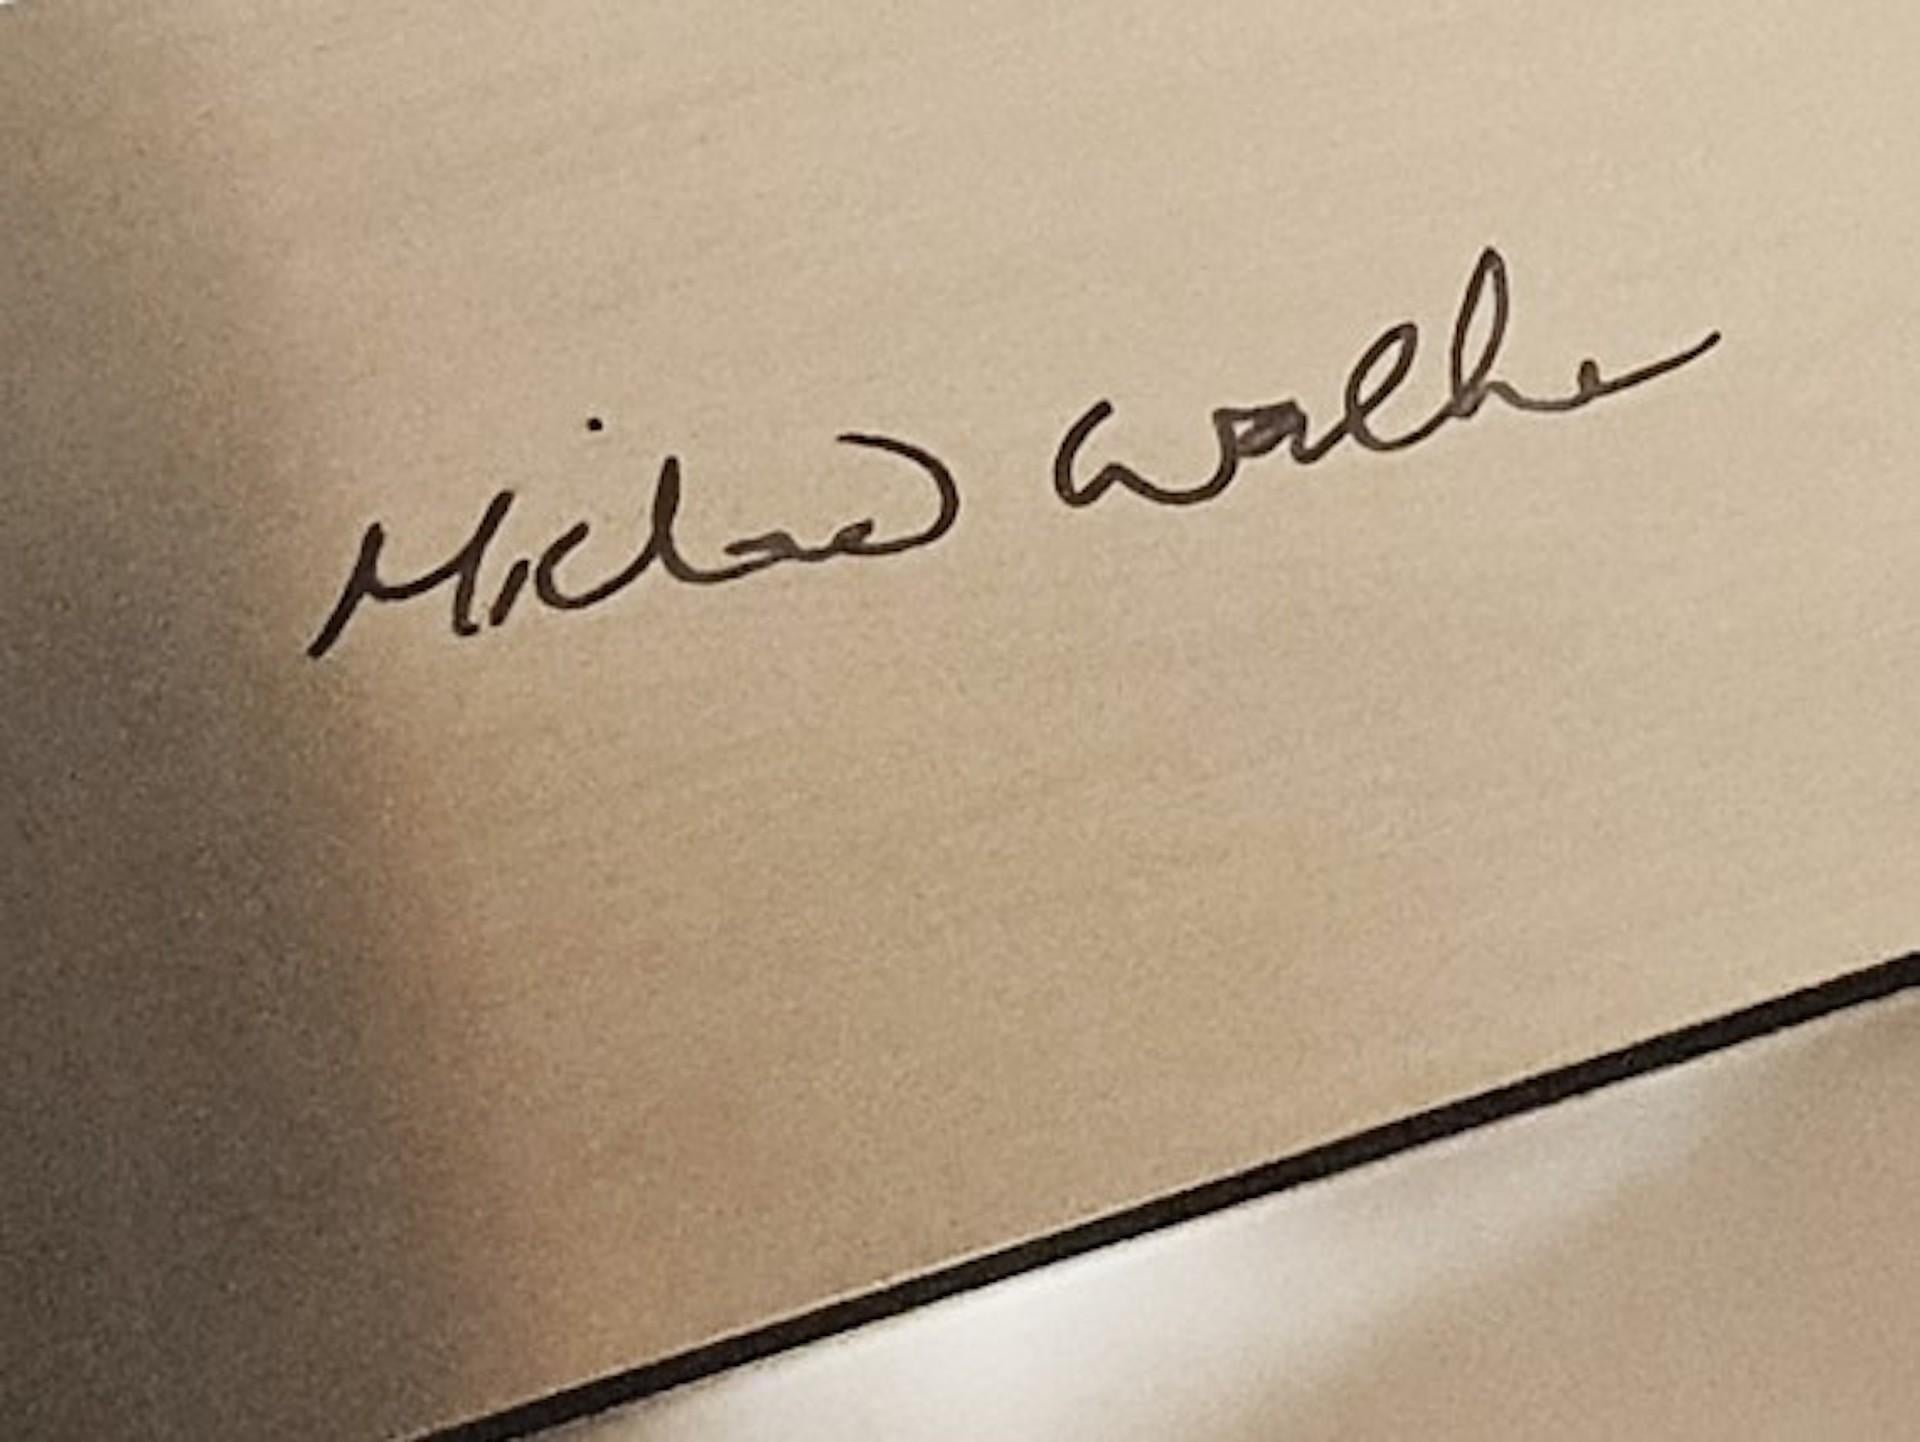 Michael Walker